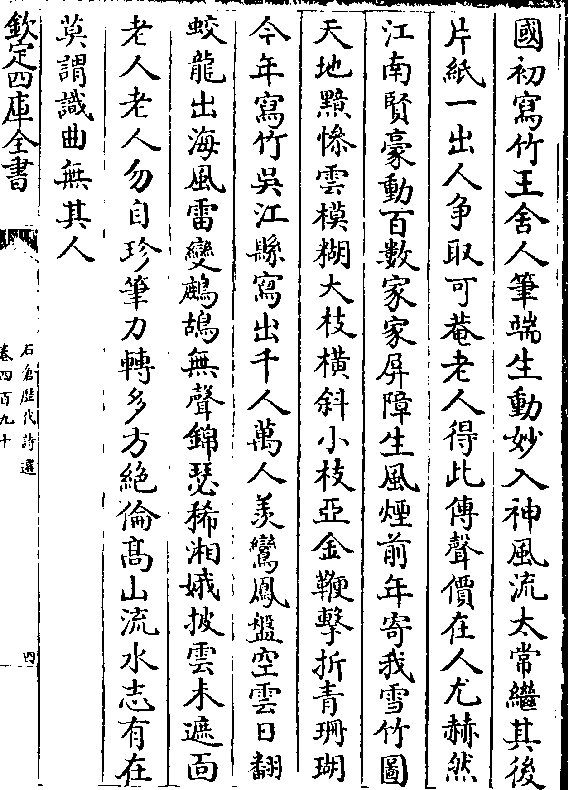 國初寫竹王舍人筆端生動妙入神風流太常繼其後
片紙一出人争取可菴老人得此傳聲價在人尤赫然
江南賢豪動百數家家屏障生風煙前年寄我雪竹圖
天地黲慘雲模糊大枝橫斜小枝亞金鞭擊折青珊瑚
今年寫竹吳江縣寫出千人萬人羨鸞鳳盤空雲日翻
蛟龍出海風雷變鷓鴣無聲錦瑟稀湘娥披雲未遮面
老人老人勿自珍筆力轉多方絶倫髙山流水志有在
莫謂識曲無其人
欽定四庫全書
石倉歴代詩選
卷四百九十
四